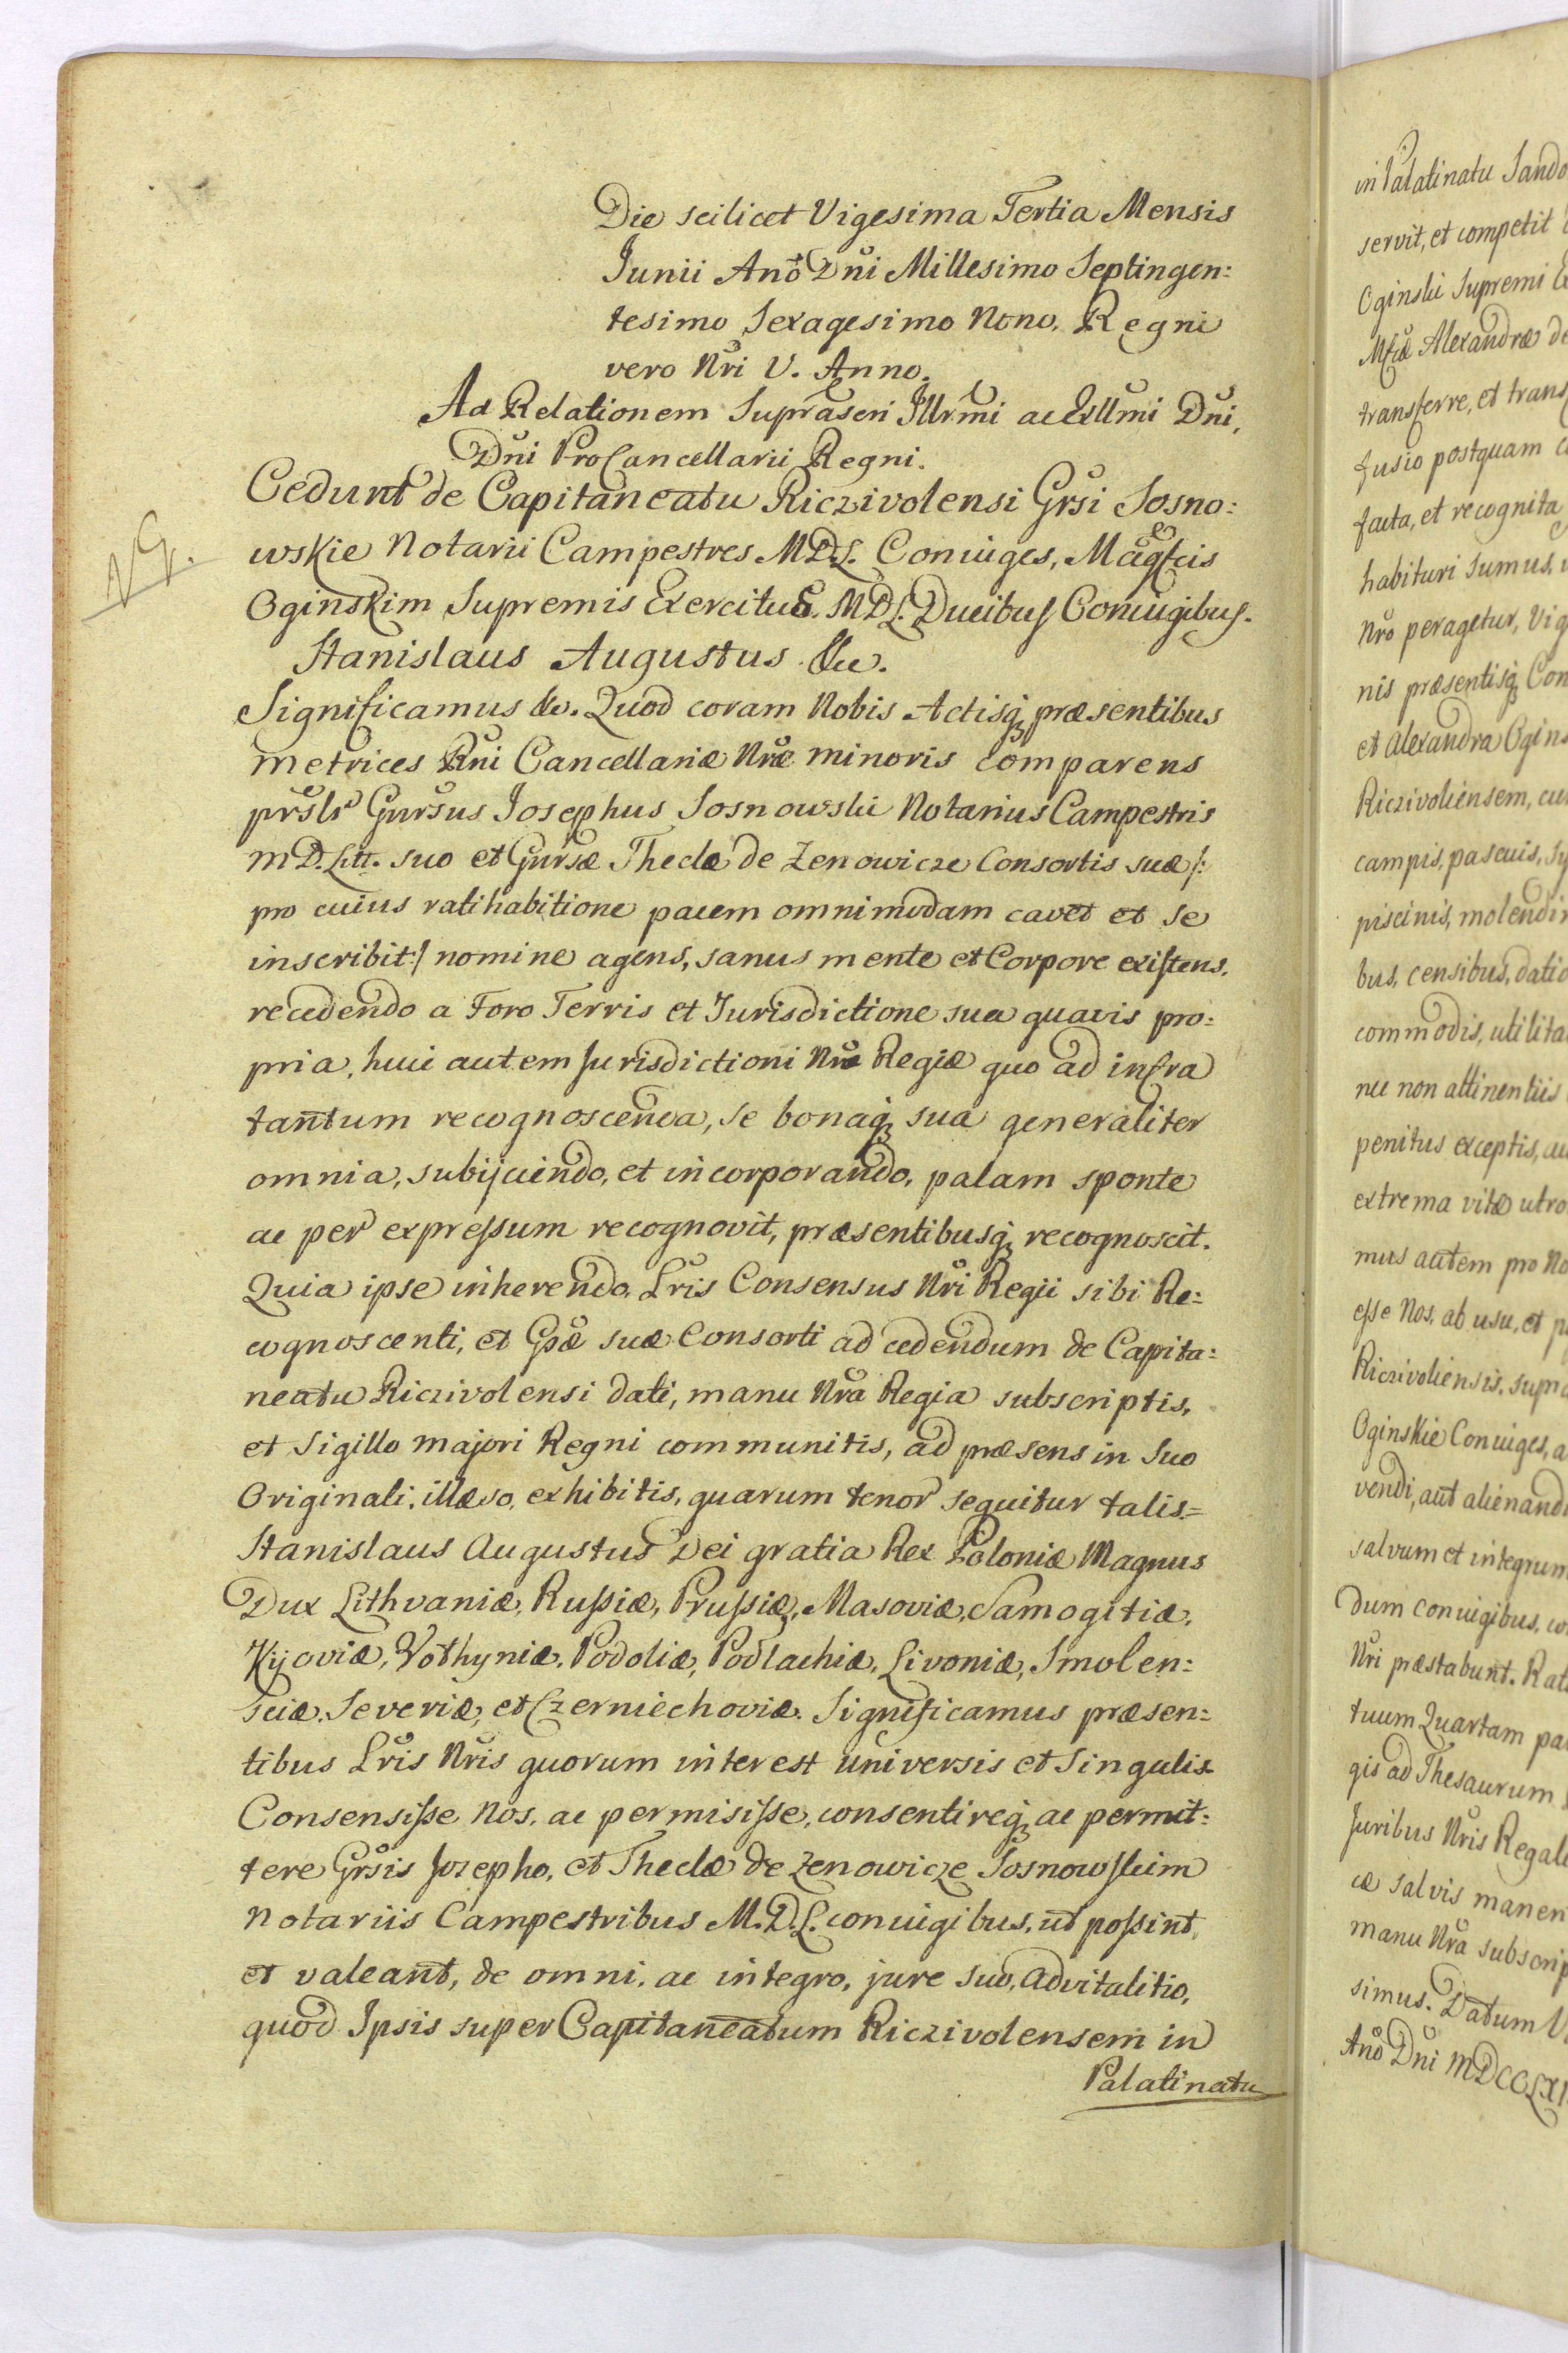 Die scilicet Vigesima Tertia Mensis
Junii Año Dñi Millesimo Septingen:
tesimo Sexagesimo Nono. Regni
vero Nri V. Anno.
Ad Relationem Suprascri Illrmi ac Exllmi Dni,
Dni ProCancellarii Regni.
Cedunt de Capitaneatu Riczivolensi Grsi Sosno:
wskie Notarii Campestres M.D.L. Coniuges, Magfcis
Oginskim Supremis Exercitus. M.D.L. Ducibus Coniugibus.
NG.
Stanislaus Augustus &c.
Significamus &c. Quod coram Nobis Actisq₃ præsentibus
metrices Rni Cancellariæ Nræ minoris comparens
prslr Gnrsus Josephus Sosnowski Notarius Campestris
M.D.Litt. suo et Gnrsæ Theclæ de Zenowicze Consortis suæ /:
pro cuius ratihabitione pacem omnimodam cavet et se
inscribit:/ nomine agens, sanus mente et Corpore existens,
recedendo a Foro Terris et Jurisdictione sua quavis pro:
pria, huic autem Jurisdictioni Nræ Regiæ quo ad infra
tantum recognoscenda, se bonaq₃ sua generaliter
omnia, subijciendo, et incorporando, palam sponte
ac per expressum recognovit, præsentibusq₃ recognoscit.
Quia ipse inherendo Lris Consensus Nri Regii sibi Re:
cognoscenti, et Gsæ suæ Consorti ad cedendum de Capita:
neatu Riczivolensi dati, manu Nra Regia subscriptis,
et Sigillo majori Regni communitis, ad præsens in Suo
Originali, illæso, exhibitis, quarum tenor sequitur talis=
Stanislaus Augustus Dei gratia Rex Poloniæ Magnus
Dux Lithvaniæ, Russiæ, Prussiæ, Masoviæ, Samogitiæ,
Kijoviæ, Volhyniæ, Podoliæ, Podlachiæ, Livoniæ, Smolen:
sciæ, Severiæ, et Czerniechoviæ. Significamus præsen:
tibus Lris Nris quorum interest universis et Singulis
Consensisse Nos, ac permisisse, consentireq₃ ac permit:
tere Grsis Jozepho, et Theclæ de Zenowicze Sosnowskim
Notariis Campestribus M.D.L. coniugibus, ut possint,
et valeant, de omni, ac integro, jure suo, advitalitio,
quod Ipsis super Capitaneatum Riczivolensem in
Palatinatu
in Palatinatu Sando
servit, et competit
Oginski Supremi
Mfcæ Alexandræ de
transferre, et trans
fusio postquam
facta, et recognita
habituri sumus,
Nro peragetur,
nis præsentisq₃ Con
et Alexandra Ogins
Riczivoliensem, cu
campis, pascuis, Sy
piscinis, molendin
bus, censibus, datio
commodis, utilita
nec non attinentiis
penitus exceptis, au
extrema vitæ utro
mus autem pro No
esse Nos, ab usu, et p
Riczivoliensis, supra
Oginskie Coniuges, a
vendi, aut alienandi
salvum et integrum
dum coniugibus, co
Nri præstabunt. Rat
tuum Quartam pa
gis ad Thesaurum
Juribus Nris Regal
cæ salvis manen
manu Nra subscrip
simus. Datum
Año Dni MDCCLXI